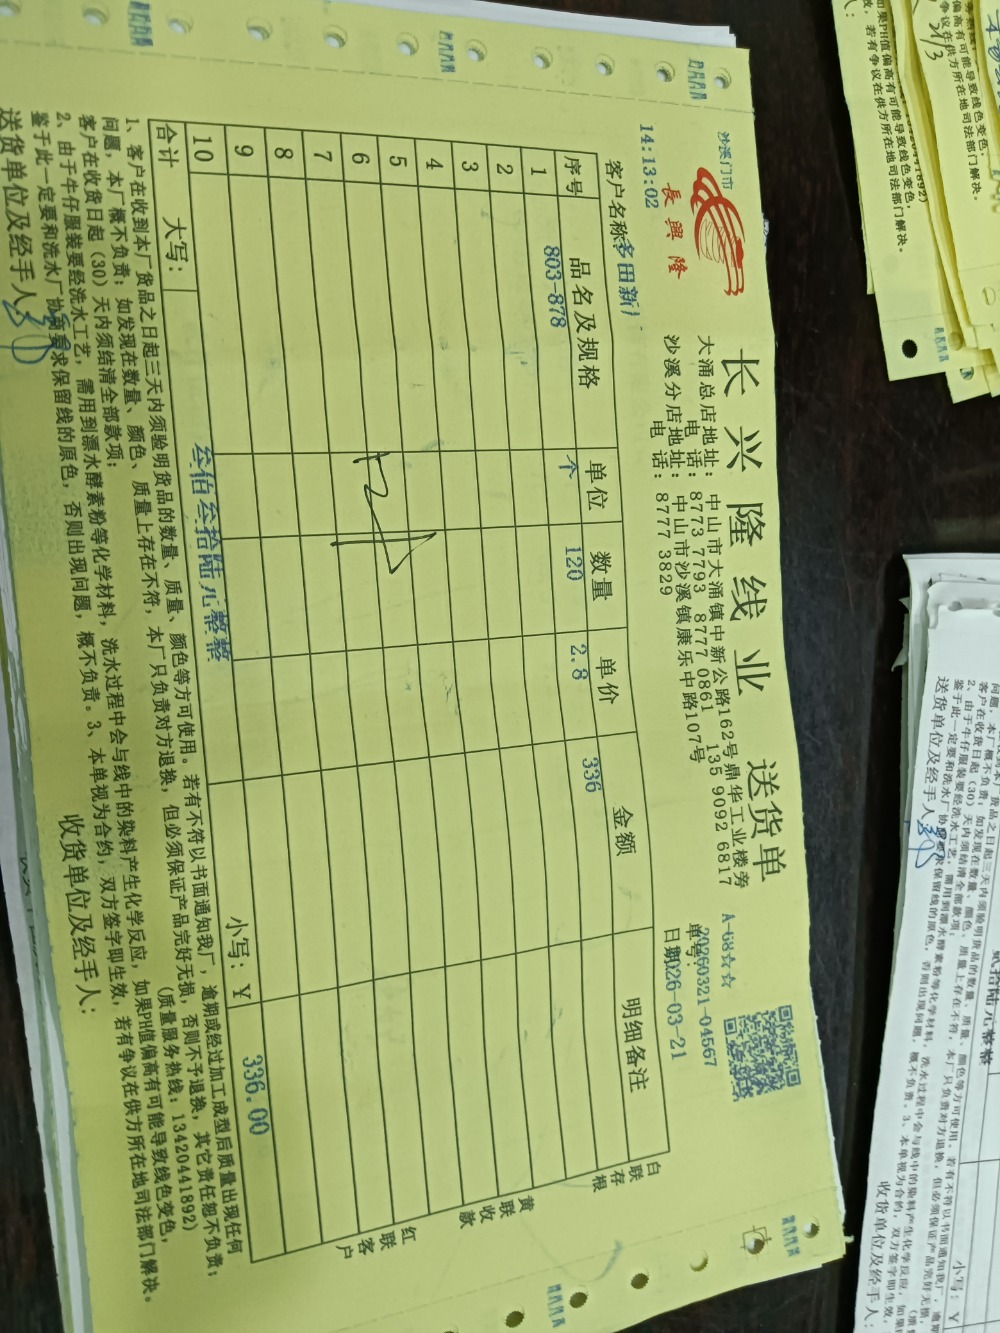 沙溪门市
長興隆
14:13:02
长兴隆线业 送货单
大涌总店地址: 中山市大涌镇中新公路162号鼎华工业楼旁
电 话: 8773 7793 8777 0861 135 9092 6817
沙溪分店地址: 中山市沙溪镇康乐中路107号
电 话: 8777 3829
A-68☆☆
单号: 20260321-04567
日期: 2026-03-21
客户名称: 多田新厂
序号 品名及规格 单位 数量 单价 金额 明细备注
1 803-878 个 120 2.8 336
2
3
4
5
6
7
8
9
10
合计 大写: 叁佰叁拾陆元整整 小写: ¥ 336.00
白联存根
黄联收款
红联客户
1、客户在收到本厂货品之日起三天内须验明货品的数量、质量、颜色等方可使用。若有不符以书面通知我厂，逾期或经过加工成型后质量出现任何
问题，本厂概不负责；如发现在数量、颜色、质量上存在不符，本厂只负责对方退换，但必须保证产品完好无损，否则不予退换，其它责任恕不负责；
客户在收货日起（30）天内须结清全部款项； （质量服务热线：13420441892）
2、由于牛仔服装要经洗水工艺，需用到漂水酵素粉等化学材料，洗水过程中会与线中的染料产生化学反应，如果PH值偏高有可能导致线色变色，
鉴于此一定要和洗水厂协商要求保留线的原色，否则出现问题，概不负责。3、本单视为合约，双方签字即生效，若有争议在供方所在地司法部门解决。
送货单位及经手人: 收货单位及经手人:
如果PH值偏高有可能导致线色变色，
若有争议在供方所在地司法部门解决。
偏高有可能导致线色变色，
争议在供方所在地司法部门解决。
31/3
贰拾陆元整整
小写: ¥
客户在收货日起（30）天内须结清全部款项；
送货单位及经手人:
收货单位及经手人: